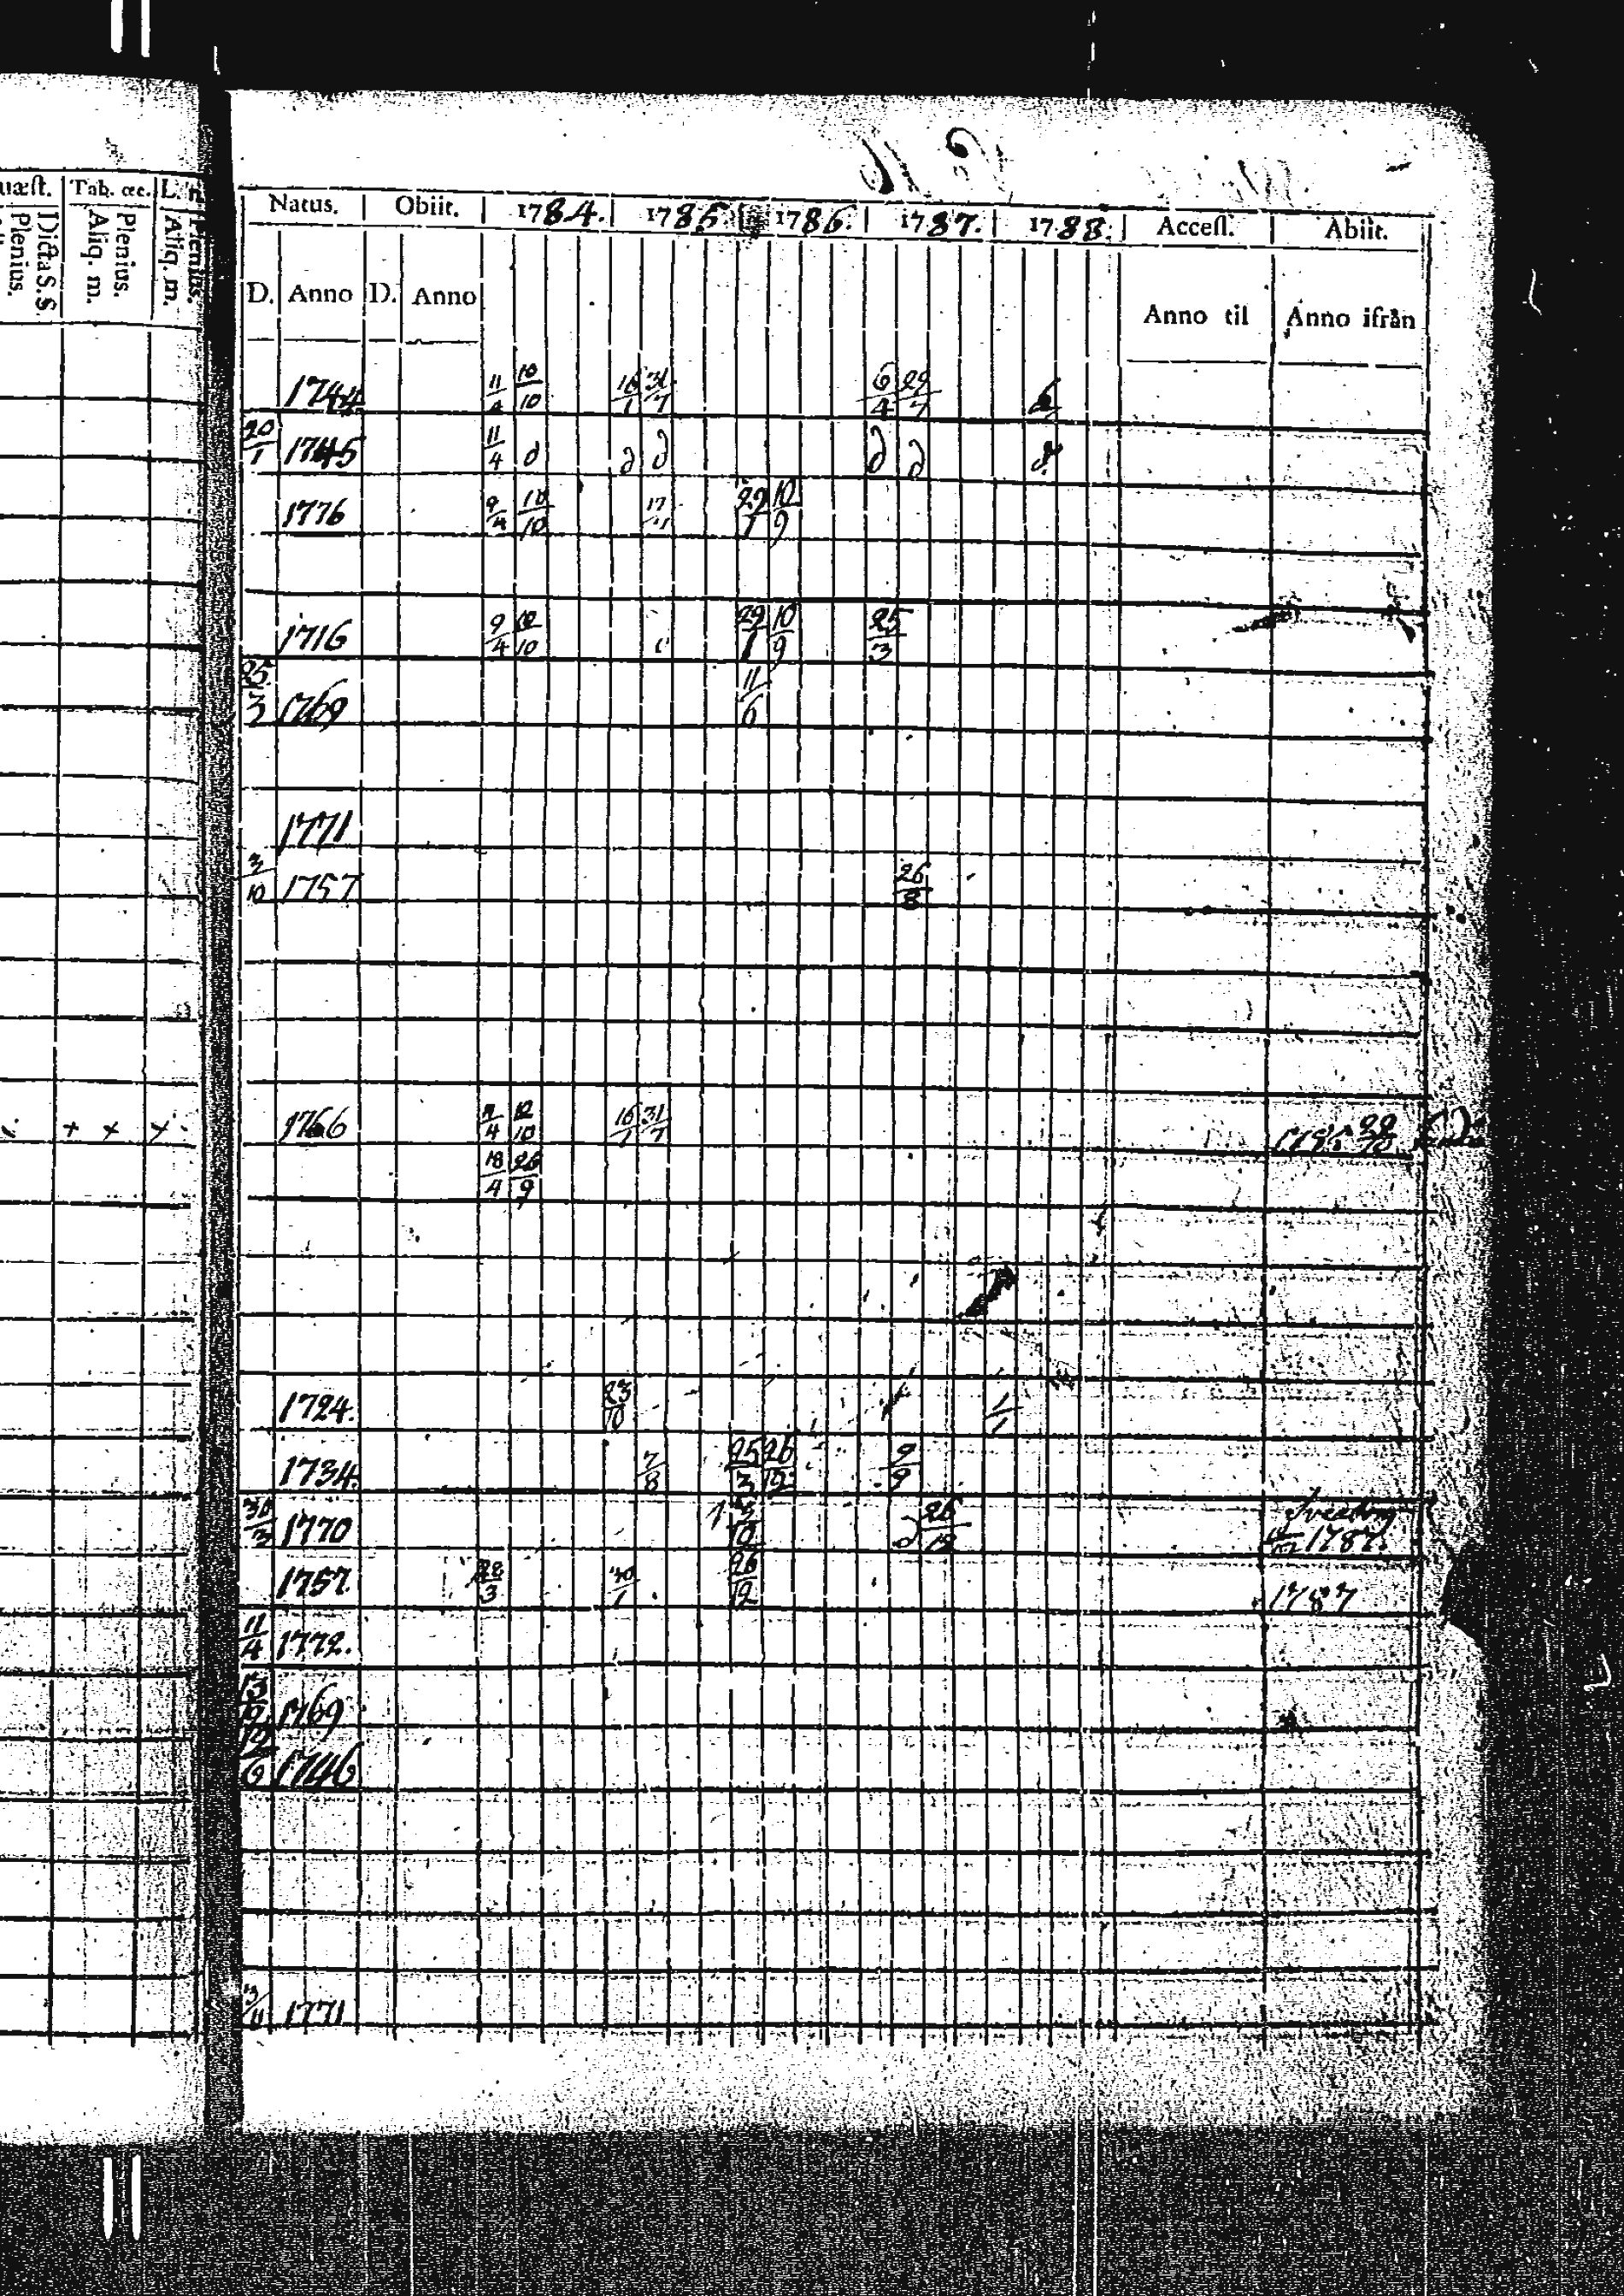 uæst. Tab. œc. L. æ
Dicta S. S. Plenius. Plenius. Aliq. m. Plenius. Aliq. m.
Natus. Obiit. 1784. 1785. 1786. 1787. 1788. Access. Abiit.
D. Anno D. Anno Anno til Anno ifrån
1744 11/4 10/10 16/1 31/7 6/4 29/7
20/1 1745 11/4 d d d d d
1776 9/4 10/10 17 29/1 10/9
1716 9/4 12/10 29/1 10/9 25/3
25/3 1769 11/6
1771
3/10 1757 26/8
+ + + 1766 11/4 12/10 16/1 31/7
18/4 26/9
1724. 23/10 1/1
1734. 7/8 25/3 26/12 9/9
30/3 1770 3/10 d 26/12 Sveaborg
1787.
1757. 28/3 30/1 26/12 1787
11/4 1772.
13/12 1769
12/9 1746
3/11 1771